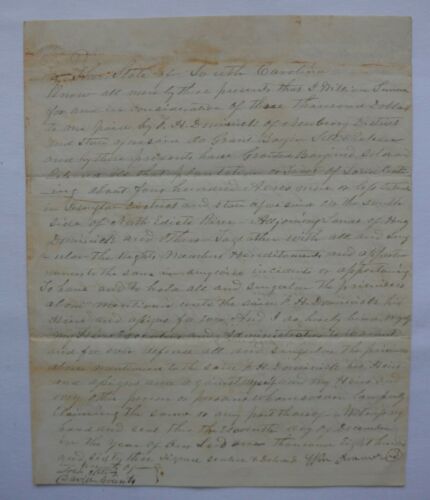 The State of South Carolina
Know all men by these presents that I William
for and in consideration of three thousand Dollars
to me paid by J. H. Dominick of Newbery District
and State aforesaid do Grant Bargin Sell & Release
and by these presents have Granted Bargined Sold and
Released all that plantation or Tract of Land Contain
ing about four hundred Acres more or less situate
in Lexington District and state aforesaid on the south
side of North Edisto River Adjoining Lands of
Dominick and Others Togather with all and Sing
ular the Rights Members Hereditaments and appurte
nances to the same in anywise incident or appertaining
To have and to hold all and singular the premises
above mention unto the said J. H. Dominick his
Heirs and assigns for ever And I do hereby bind myself
my Heirs Executors and Administrators to warrant
and for ever defend all and singular the premises
above mentioned to the said J. H. Dominick his Heirs
and assigns and against myself and my Heirs and
every other person or persons whomsoever lawfully
Claiming the same or any part thereof Witness my
hand and seal this the Eleventh day of December
in the year of Our Lord one thousand Eight hundred
and sixty three Signed sealed & Delivd
David Counts